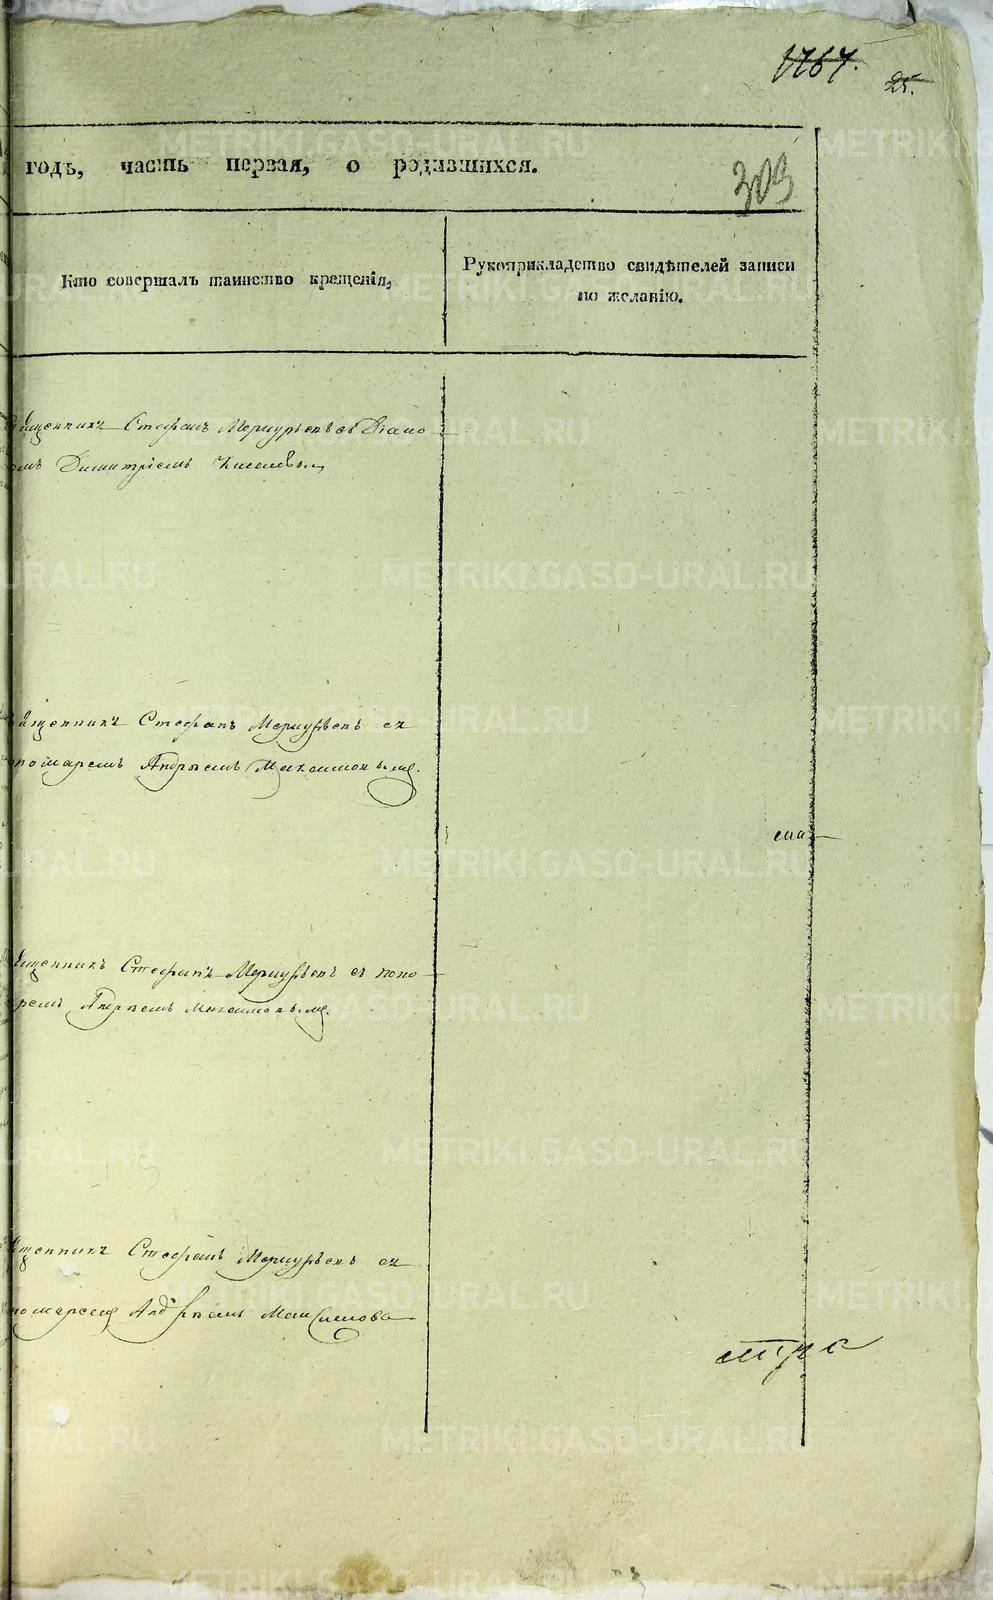 1767.
25.
годъ, часть первая, о родившихся.
303
Кто совершалъ таинство крещенія,
Рукоприкладство свидѣтелей записи
по желанію.
ященникъ Стефанъ Меркурьевъ съ Діако-
омъ Димитріемъ
ященникъ Стефанъ Меркурьевъ съ
номаремъ Андреемъ Максимовымъ.
ященникъ Стефанъ Меркурьевъ съ поно-
ремъ Андреемъ Максимовымъ.
ященникъ Стефанъ Меркурьевъ съ
номаремъ Андреемъ Максимова
METRIKI.GASO-URAL.RU